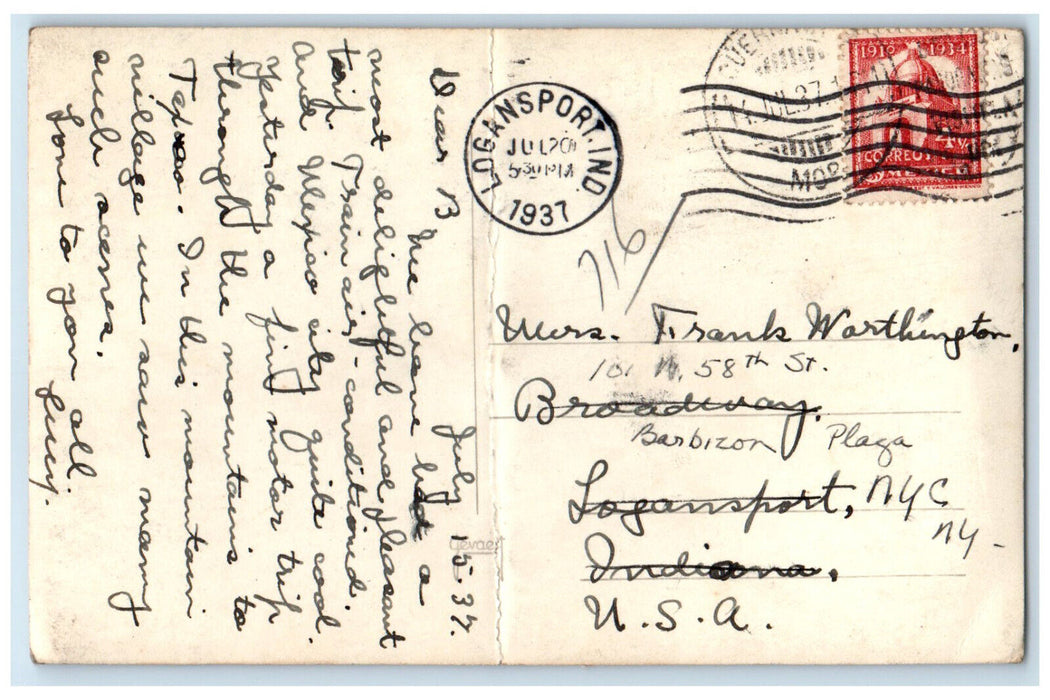 July 15-37.
Dear B
We have had a
most delightful and pleasant
trip. Train air-conditioned.
and Mexico city quite cool.
Yesterday a fine motor trip
through the mountains to
Taxco. In this mountain
village we saw many
such scenes.
Love to you all.
Lucy.
LOGANSPORT, IND.
JUL 20
5 30 PM
1937
JUL.37
MOR
1910 1934
CORREOS
MEXICO
716
Mrs. Frank Worthington,
101 W. 58th St.
Broadway.
Barbizon Plaza
Logansport, NYC
NY-
Indiana,
U.S.A.
Gevaert